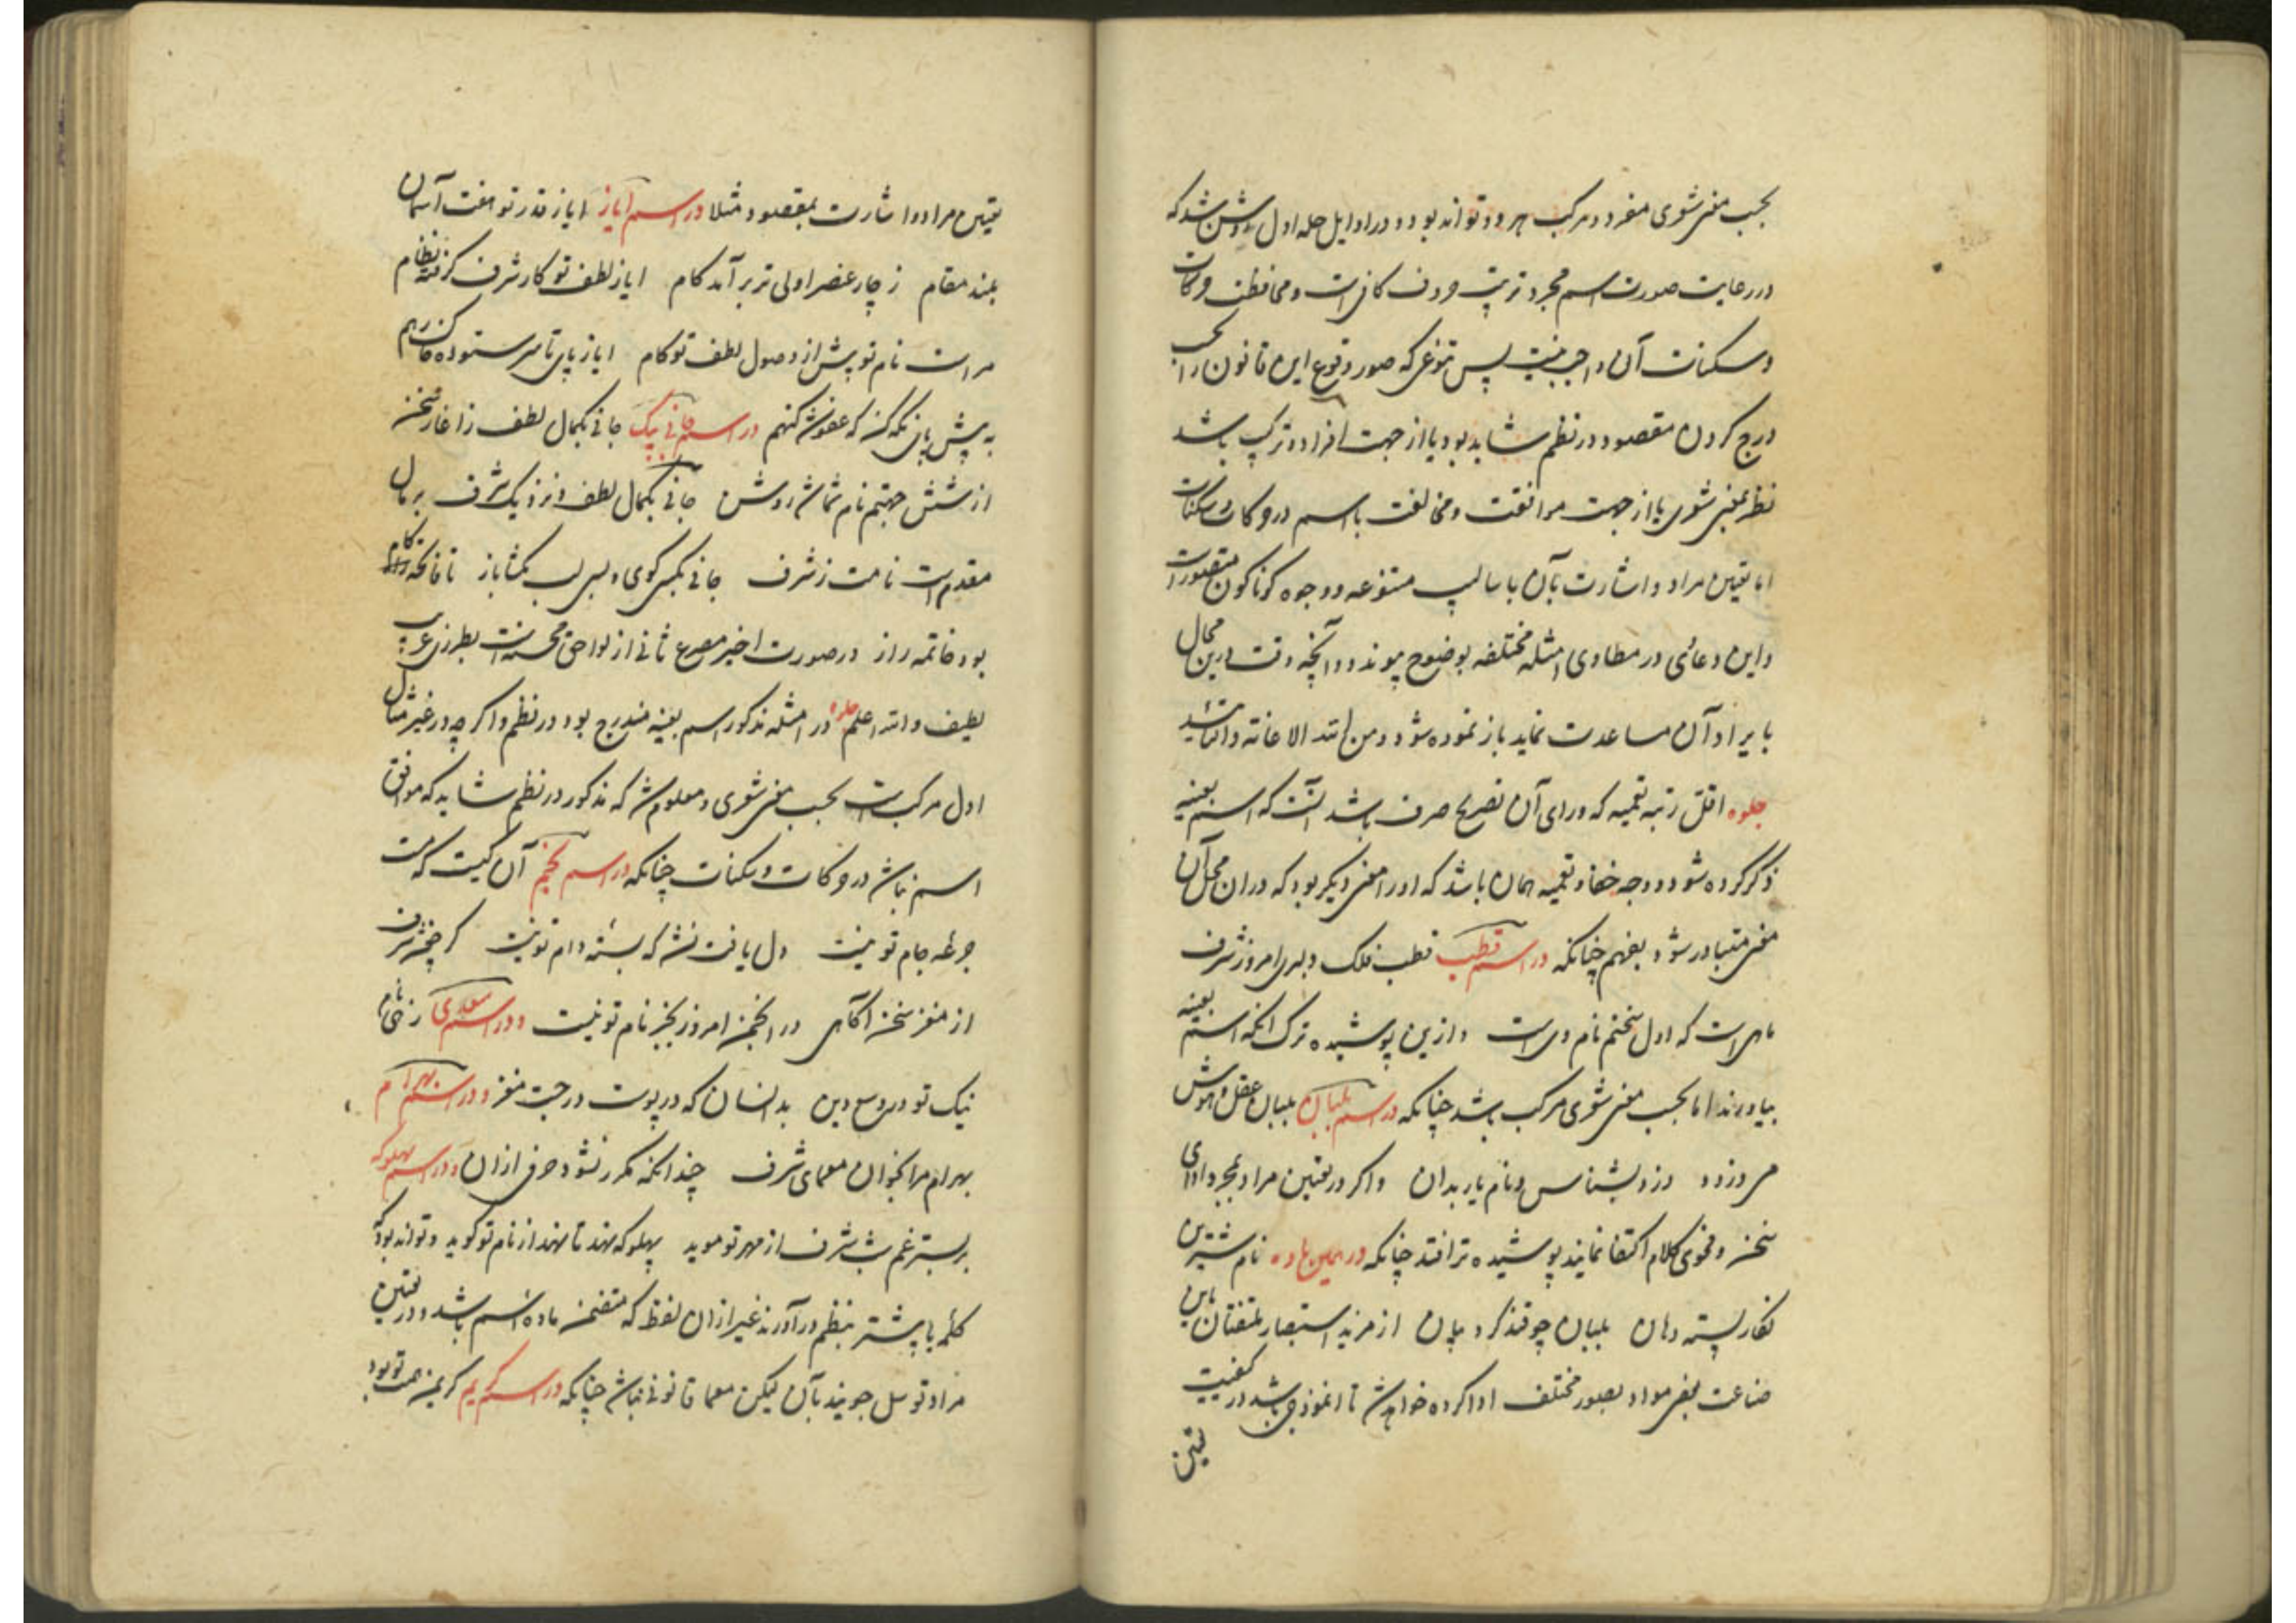 بحسب معنی شعری مفرد و مرکب هر دو تواند بود و در اوایل حله اول روشن شد که
در رعایت صورت اسم مجرد ترتیب حروف کافی است و محافظت حرکات
و سکنات آن واجب نیست پس تنوعی که صور وقوع این قانون را بحسب
درج کردن مقصود در نظم شاید بود یا از جهت افراد و ترکیب باشد
نظر بمعنی شعری یا از جهت موافقت و مخالفت با اسم در حرکات و سکنات
اما تعیین مراد و اشارت بآن باسالیب متنوعه و وجوه کوناکون متصورست
و این دعاوی در مطاوی امثله مختلفه بوضوح پیوندد و آنچه وقت درین مجال
بایراد آن مساعدت نماید باز نموده شود و من الله الاعانة والتأیید
جلوه اقل رتبه تعمیه که ورای آن تصریح صرف باشد آنست که اسم بعینه
ذکر کرده شود و وجه خفا و تعمیه همان باشد که او را معنی دیگر بود که در ان محل آن
معنی متبادر شود بفهم چنانکه در اسم قطب قطب فلک دلبری امروز شرف
ماهی است که اول سخنم نام وی است و ازین پوشیده ترک آنکه اسم بعینه
بیاورند اما بحسب معنی شعری مرکب باشد چنانکه در اسم بلبان بلبان عقل و هوش
مر دزدد دزد بشناس و نام یار بدان و اکر در تعیین مراد بمجرد ادای
سخن و فحوی کلام اکتفا نمایند پوشیده تر افتد چنانکه در همین ماده نام شیرین
نکار پسته دهان بلبان چو قند کرد بیان از مزید استبصار متفتنان این
صناعت بعضی مواد بصور مختلف ادا کرده خواهد شد تا انموذجی باشد در کیفیت
تعیین
تعیین مراد و اشارت بمقصود مثلا در اسم ایاز ای از قدر تو هفت آسمان
بلند مقام ز چار عنصر اولی تر برآمد کام ای از لطف تو کار شرف کرفته نظام
مراست نام تو پیش از وصول لطف تو کام ای از پای تا سر ستوده
به پیش پای نکه کن که عفوش کنم در اسم جانی بیک جانی بکمال لطف ز آغاز سخن
از شش جهتم نام شماش روشن جانی بکمال لطف و نزدیک شرف بر مال
مقدم است نامت ز شرف جانی بکسی کوی و بسی لب بکشا باز تا فاتحه
بود خاتمه راز در صورت اخیر مصرع ثانی از لواحق محسنه است بطرزی غریب
لطیف والله اعلم جلوه در امثله مذکور اسم بعینه مندرج بود در نظم و اکر چه در غیر مثال
اول مرکب است بحسب معنی شعری و معلوم شد که مذکور در نظم شاید که موافق
اسم نباشد در حرکات و سکنات چنانکه در اسم نجم آن کیست که مست
جرعه جام تو نیست دل یافت نشد که بسته دام تو نیست کر چه شرف
از مغز سخن آکاهی در انجمن امروز بجز نام تو نیست و در اسم سعدی
نیک تو در وسع دین بدانسان که در پوست در جست مغز و در اسم بهرام
بهرام مرا بخوان معمای شرف چندانکه مکرر نشود حرفی از ان و در اسم پهلوکه
بر بستر غم شب شرف از مهر تو موید پهلو که نهد تا نهد از نام تو کوید و تواند بود که
کلمه یا بیشتر بنظم در آورند غیر از ان لفظ که متضمن ماده اسم باشد و در تعیین
مراد توسل جویند بآن لیکن معما قانونی نباشد چنانکه در اسم کریم کریمن همت تو بود